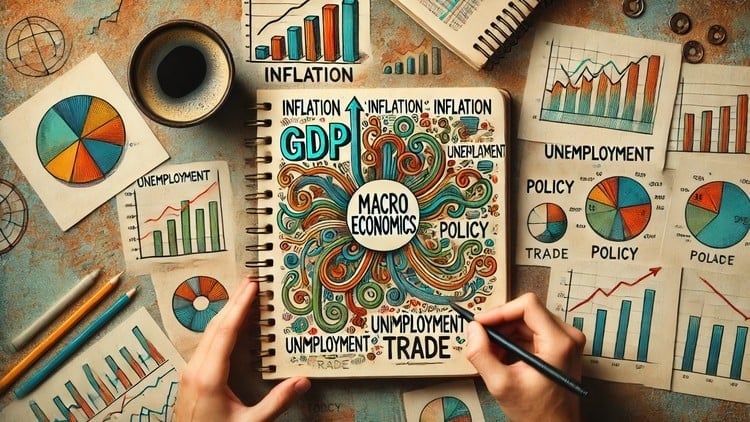 INFLATION
INFLATION INFLATION INFLATION
GDP
UNEPLAMENT
UNEMPLOYMENT
MACRO
ECONOMICS
POLICY
UNMPLOYMENT
UNMPLOYMENT
TRADE
TRADE
UNEMPLOYMENT
POLICY
TRADE
POLICY
POLADE